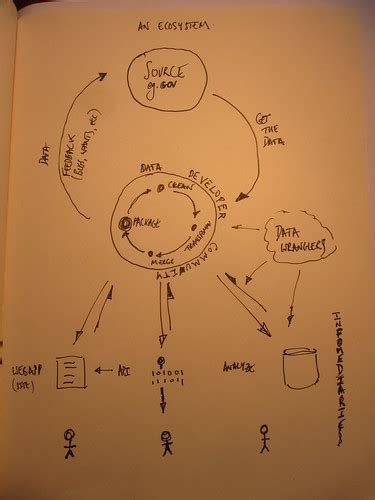 AN ECOSYSTEM.
SOURCE
eg. GOV
GET
THE
DATA
DATA
FEEDBACK
(BUGS, WANTS, etc)
DATA
DEVELOPER
COMMUNITY
CLEAN
TRANSFORM
MERGE
PACKAGE
DATA
WRANGLERS
WEBAPP
(SITE)
API
ANALYZE